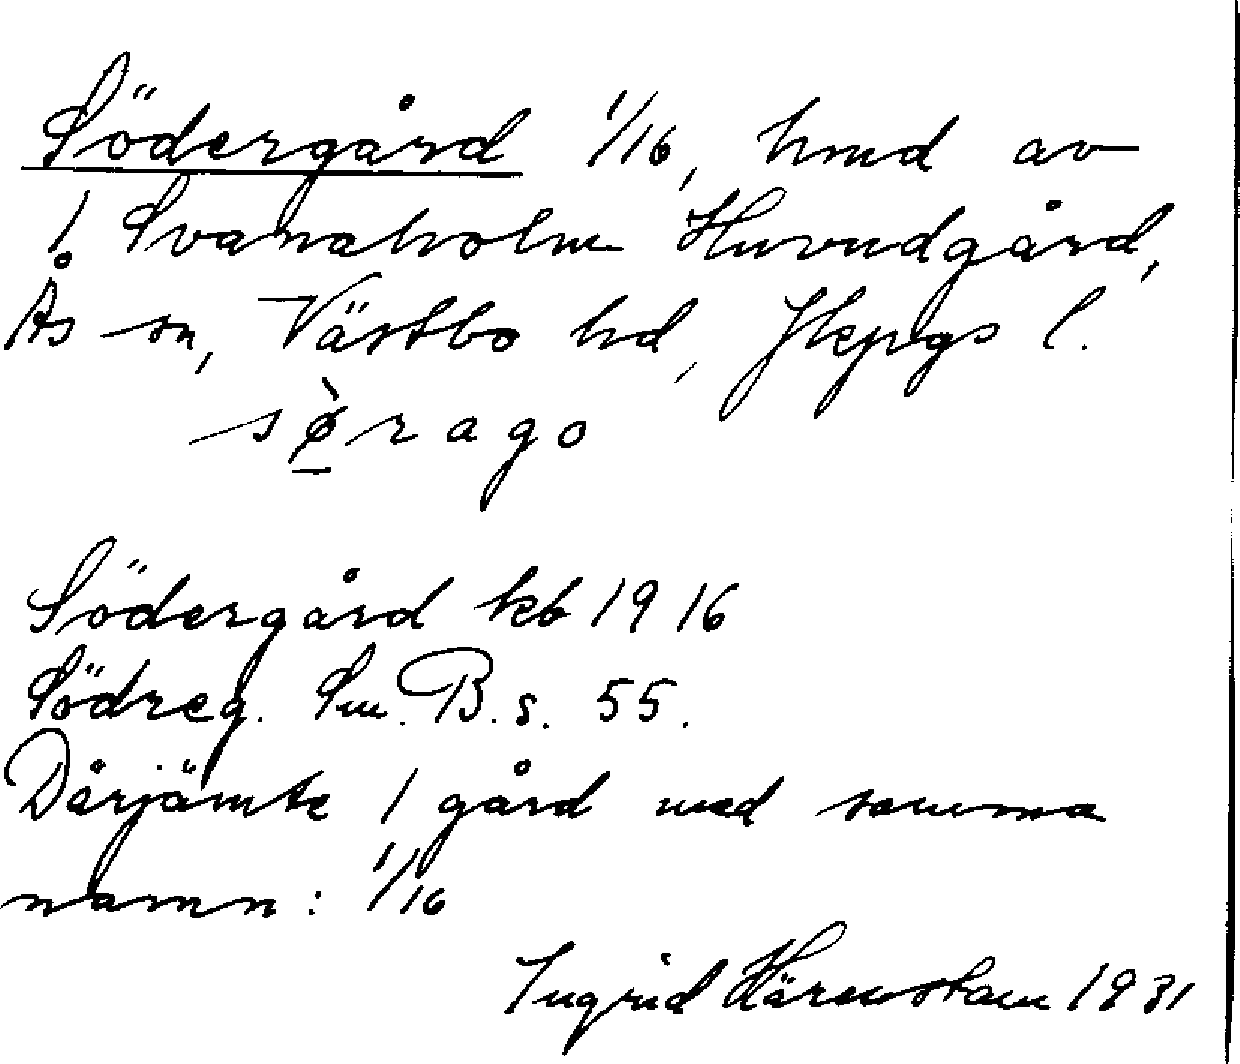 Södergård 1/16, hmd av
1 Svanaholm Huvudgård,
Ås sn, Västbo hd, Jkpgs l.
sø̱̀rago
Södergård kb 1916
Södreg. Sm. B. s. 55.
Därjämte 1 gård med samma
namn: 1/16
Ingrid Härenstam 1931